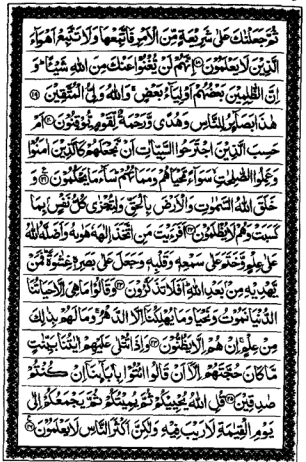 ثُمَّ جَعَلْنٰكَ عَلٰى شَرِيْعَةٍ مِّنَ الْاَمْرِ فَاتَّبِعْهَا وَلَا تَتَّبِعْ اَهْوَآءَ
الَّذِيْنَ لَا يَعْلَمُوْنَ ۝۱۸ اِنَّهُمْ لَنْ يُّغْنُوْا عَنْكَ مِنَ اللّٰهِ شَيْـًٔا ؕ وَ
اِنَّ الظّٰلِمِيْنَ بَعْضُهُمْ اَوْلِيَآءُ بَعْضٍ ۚ وَاللّٰهُ وَلِيُّ الْمُتَّقِيْنَ ۝۱۹
هٰذَا بَصَآئِرُ لِلنَّاسِ وَهُدًى وَّرَحْمَةٌ لِّقَوْمٍ يُّوْقِنُوْنَ ۝۲۰ اَمْ
حَسِبَ الَّذِيْنَ اجْتَرَحُوا السَّيِّاٰتِ اَنْ نَّجْعَلَهُمْ كَالَّذِيْنَ اٰمَنُوْا
وَعَمِلُوا الصّٰلِحٰتِ سَوَآءً مَّحْيَاهُمْ وَمَمَاتُهُمْ ؕ سَآءَ مَا يَحْكُمُوْنَ ۝۲۱ وَ
خَلَقَ اللّٰهُ السَّمٰوٰتِ وَالْاَرْضَ بِالْحَقِّ وَلِتُجْزٰى كُلُّ نَفْسٍۭ بِمَا
كَسَبَتْ وَهُمْ لَا يُظْلَمُوْنَ ۝۲۲ اَفَرَءَيْتَ مَنِ اتَّخَذَ اِلٰهَهٗ هَوٰىهُ وَاَضَلَّهُ اللّٰهُ
عَلٰى عِلْمٍ وَّخَتَمَ عَلٰى سَمْعِهٖ وَقَلْبِهٖ وَجَعَلَ عَلٰى بَصَرِهٖ غِشٰوَةً ؕ فَمَنْ
يَّهْدِيْهِ مِنْۢ بَعْدِ اللّٰهِ ؕ اَفَلَا تَذَكَّرُوْنَ ۝۲۳ وَقَالُوْا مَا هِيَ اِلَّا حَيَاتُنَا
الدُّنْيَا نَمُوْتُ وَنَحْيَا وَمَا يُهْلِكُنَآ اِلَّا الدَّهْرُ ۚ وَمَا لَهُمْ بِذٰلِكَ
مِنْ عِلْمٍ ۚ اِنْ هُمْ اِلَّا يَظُنُّوْنَ ۝۲۴ وَاِذَا تُتْلٰى عَلَيْهِمْ اٰيٰتُنَا بَيِّنٰتٍ
مَّا كَانَ حُجَّتَهُمْ اِلَّآ اَنْ قَالُوا ائْتُوْا بِاٰبَآئِنَآ اِنْ كُنْتُمْ
صٰدِقِيْنَ ۝۲۵ قُلِ اللّٰهُ يُحْيِيْكُمْ ثُمَّ يُمِيْتُكُمْ ثُمَّ يَجْمَعُكُمْ اِلٰى
يَوْمِ الْقِيٰمَةِ لَا رَيْبَ فِيْهِ وَلٰكِنَّ اَكْثَرَ النَّاسِ لَا يَعْلَمُوْنَ ۝۲۶